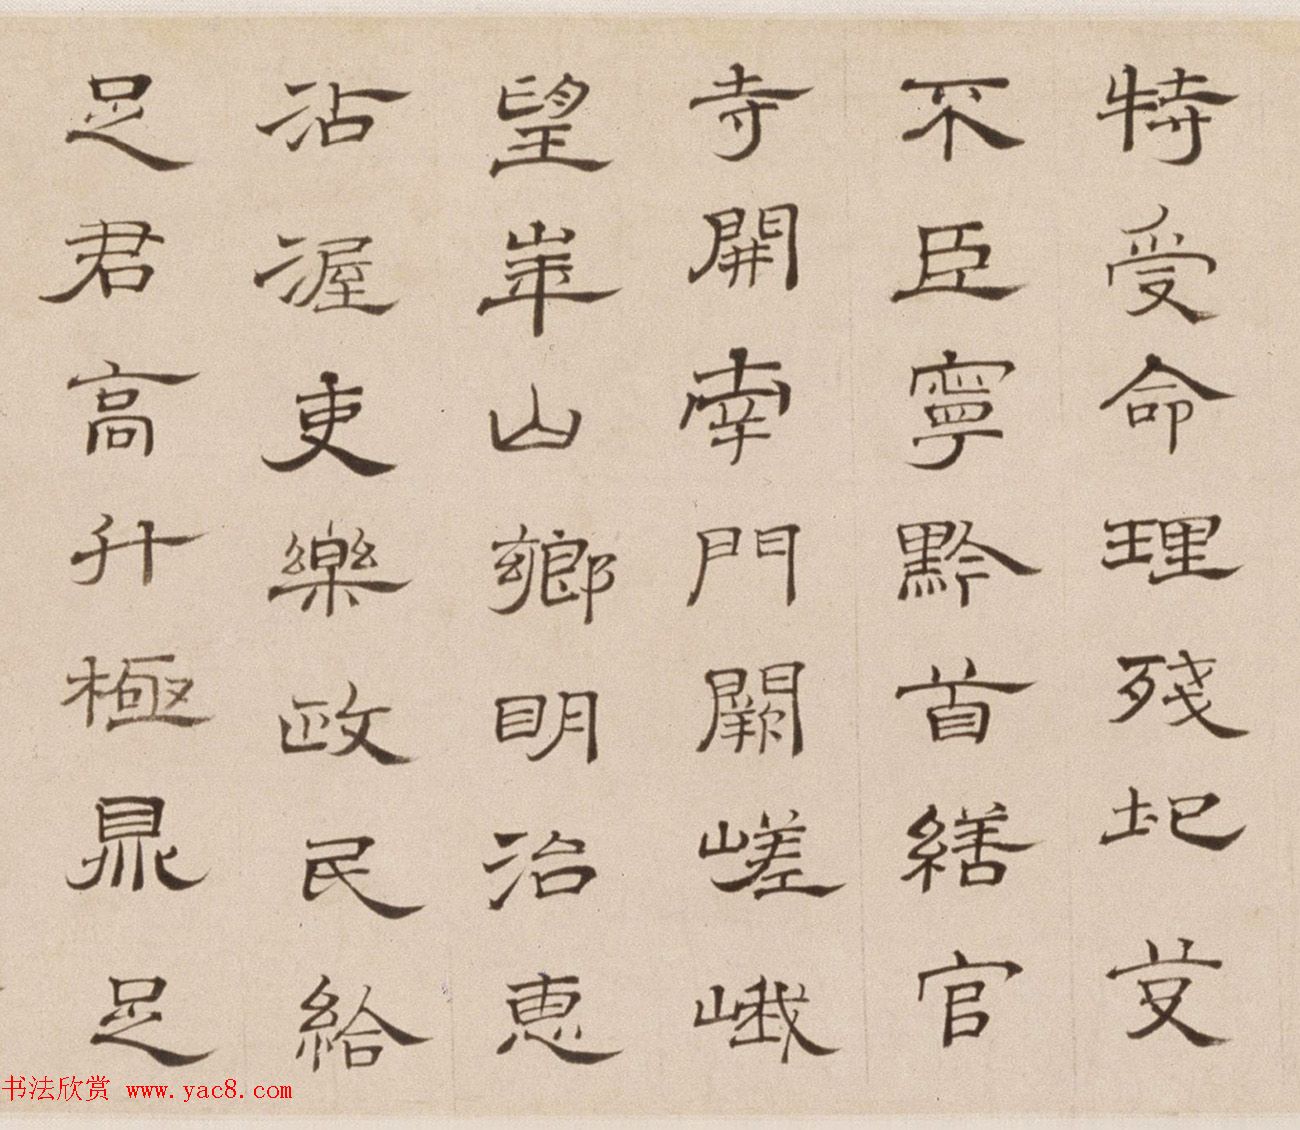 特受命理殘圯芟
不臣寧黔首繕官
寺開南門闕嵯峨
望華山鄉明治惠
沾渥吏樂政民給
足君高升極鼎足
书法欣赏 www.yac8.com